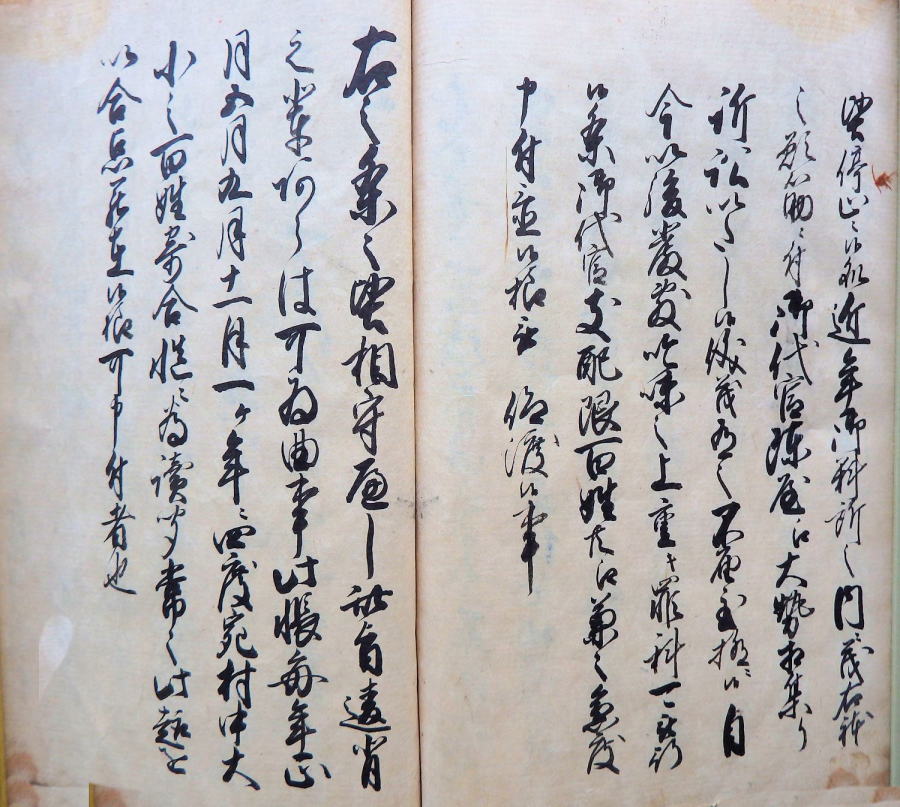 堅停止ニ候処近年御料所之内ニ茂右躰
之願筋ニ付御代官陣屋江大勢相集り
訴訟いたし候儀茂有之不届至極ニ候自
今以後厳敷吟味之上重キ罪科可被行
候条御代官支配限百姓共江兼々急度
申付置候様被 仰渡候事
右之条々堅相守へし此旨違背
之輩阿らは可為曲事此帳毎年正
月五月九月十一月一ヶ年ニ四度宛村中大
小之百姓寄合慥ニ為読聞常々此趣を
以合点罷在候様可申付者也